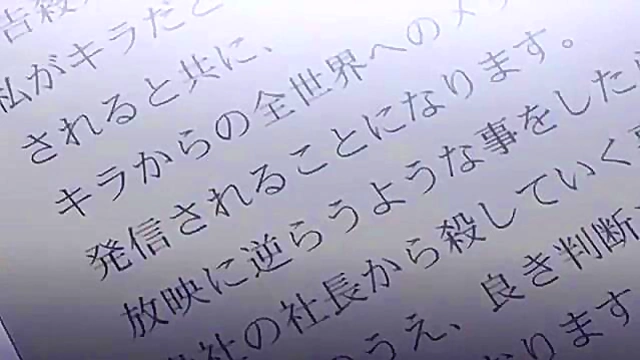 私がキラだと
されると共に、
キラからの全世界へのメッ
発信されることになります。
放映に逆らうような事をした
社の社長から殺していく
のうえ、良き判断
ります